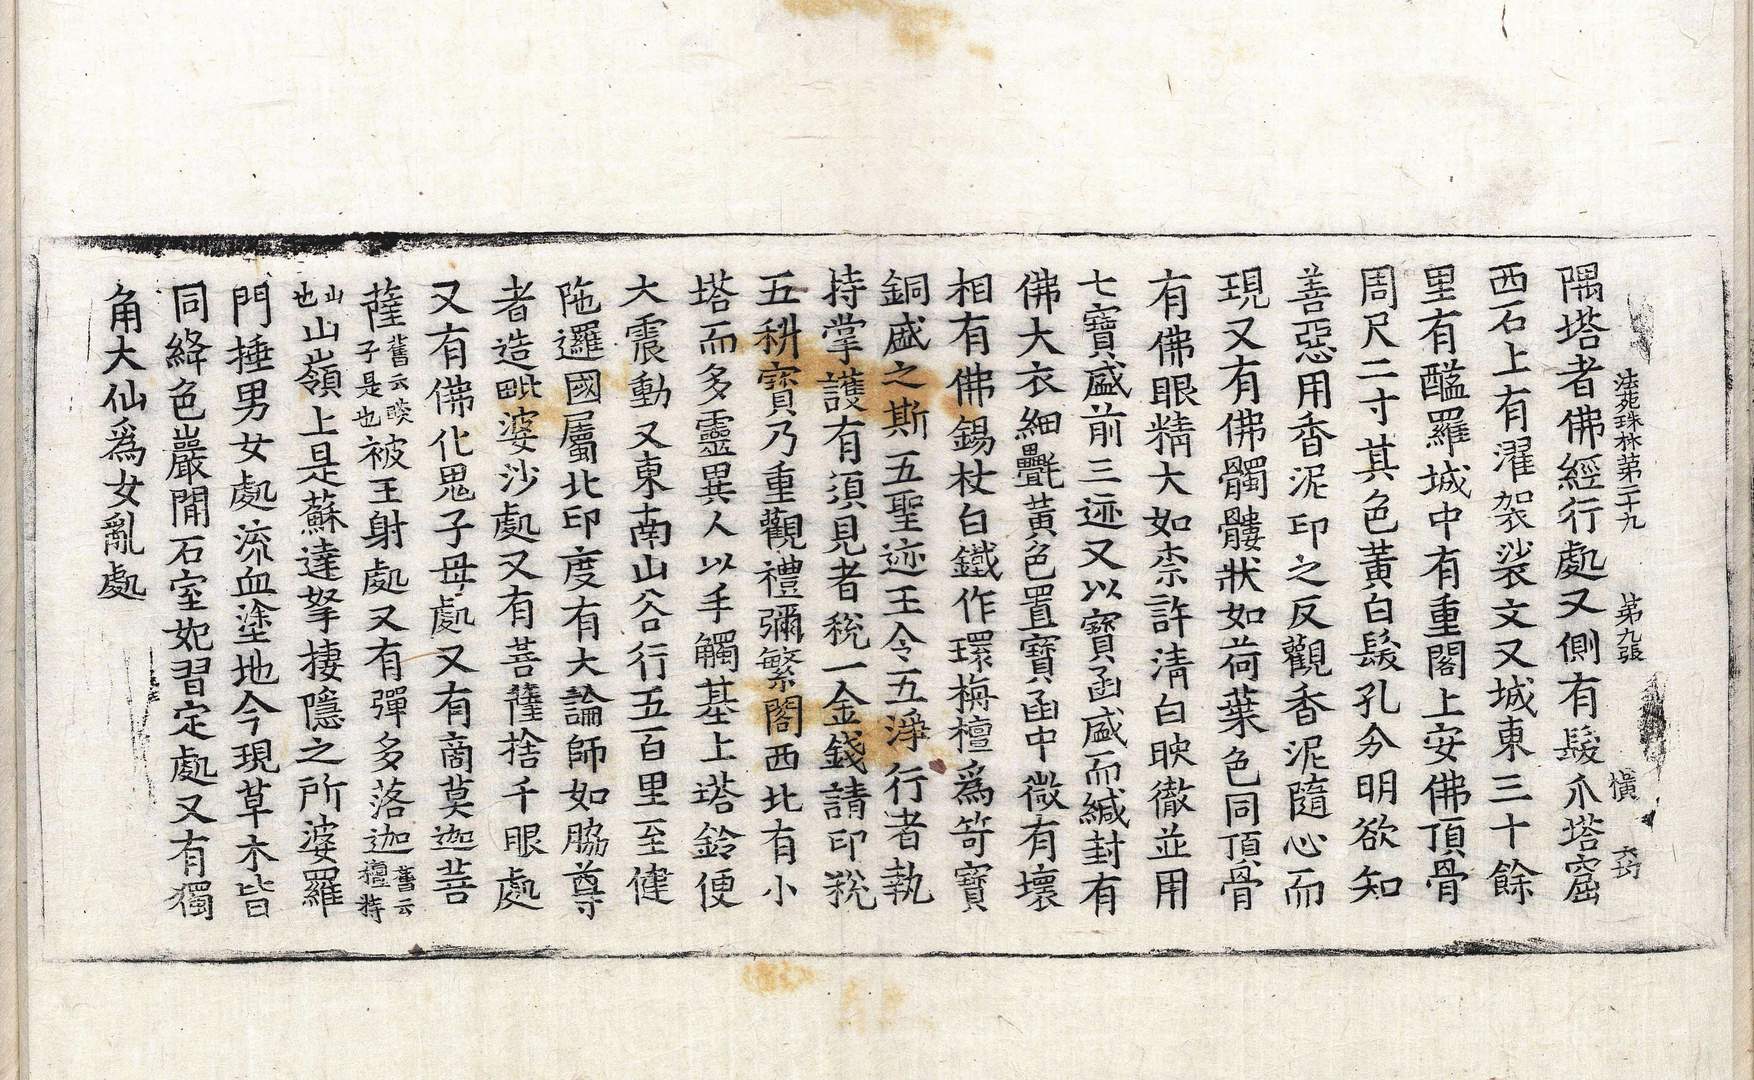 法苑珠林第二十九 第九張 橫
隅塔者佛經行處又側有髮爪塔窟
西石上有濯袈裟文又城東三十餘
里有醯羅城中有重閣上安佛頂骨
周尺二寸其色黃白髮孔分明欲知
善惡用香泥印之反觀香泥隨心而
現又有佛髑髏狀如荷葉色同頂骨
有佛眼精大如柰許清白映徹並用
七寶盛前三迹又以寶函盛而緘封有
佛大衣細㲲黃色置寶函中微有壞
相有佛錫杖白鐵作環栴檀爲笴寶
銅盛之斯五聖迹王令五淨行者執
持掌護有須見者稅一金錢請印稅
五科寶乃重觀禮彌繁閣西北有小
塔而多靈異人以手觸基上塔鈴便
大震動又東南山谷行五百里至健
陁邏國屬北印度有大論師如脇尊
者造毗婆沙處又有菩薩捨千眼處
又有佛化鬼子母處又有商莫迦菩
薩舊云睒子是也被王射處又有彈多落迦舊云檀特
山也山嶺上是蘇達拏棲隱之所婆羅
門捶男女處流血塗地今現草木皆
同絳色巖間石室妃習定處又有獨
角大仙爲女亂處